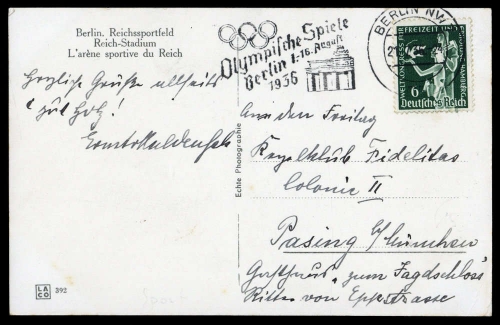 Berlin. Reichssportfeld
Reich-Stadium
L'arène sportive du Reich
Herzliche Grüße allseits
"gut Holz!
Olympische Spiele
Berlin 1.-16. August
1936
BERLIN NW
WELTKONGRESS FÜR FREIZEIT UND ERHOLUNG HAMBURG
6
Deutsches Reich
Echte Photographie
An den Freitag
Kegelklub Fidelitas
Colonie II
Pasing b/München
Gasthaus "zum Jagdschloss"
Ritter von Eppstrasse
LACO
392